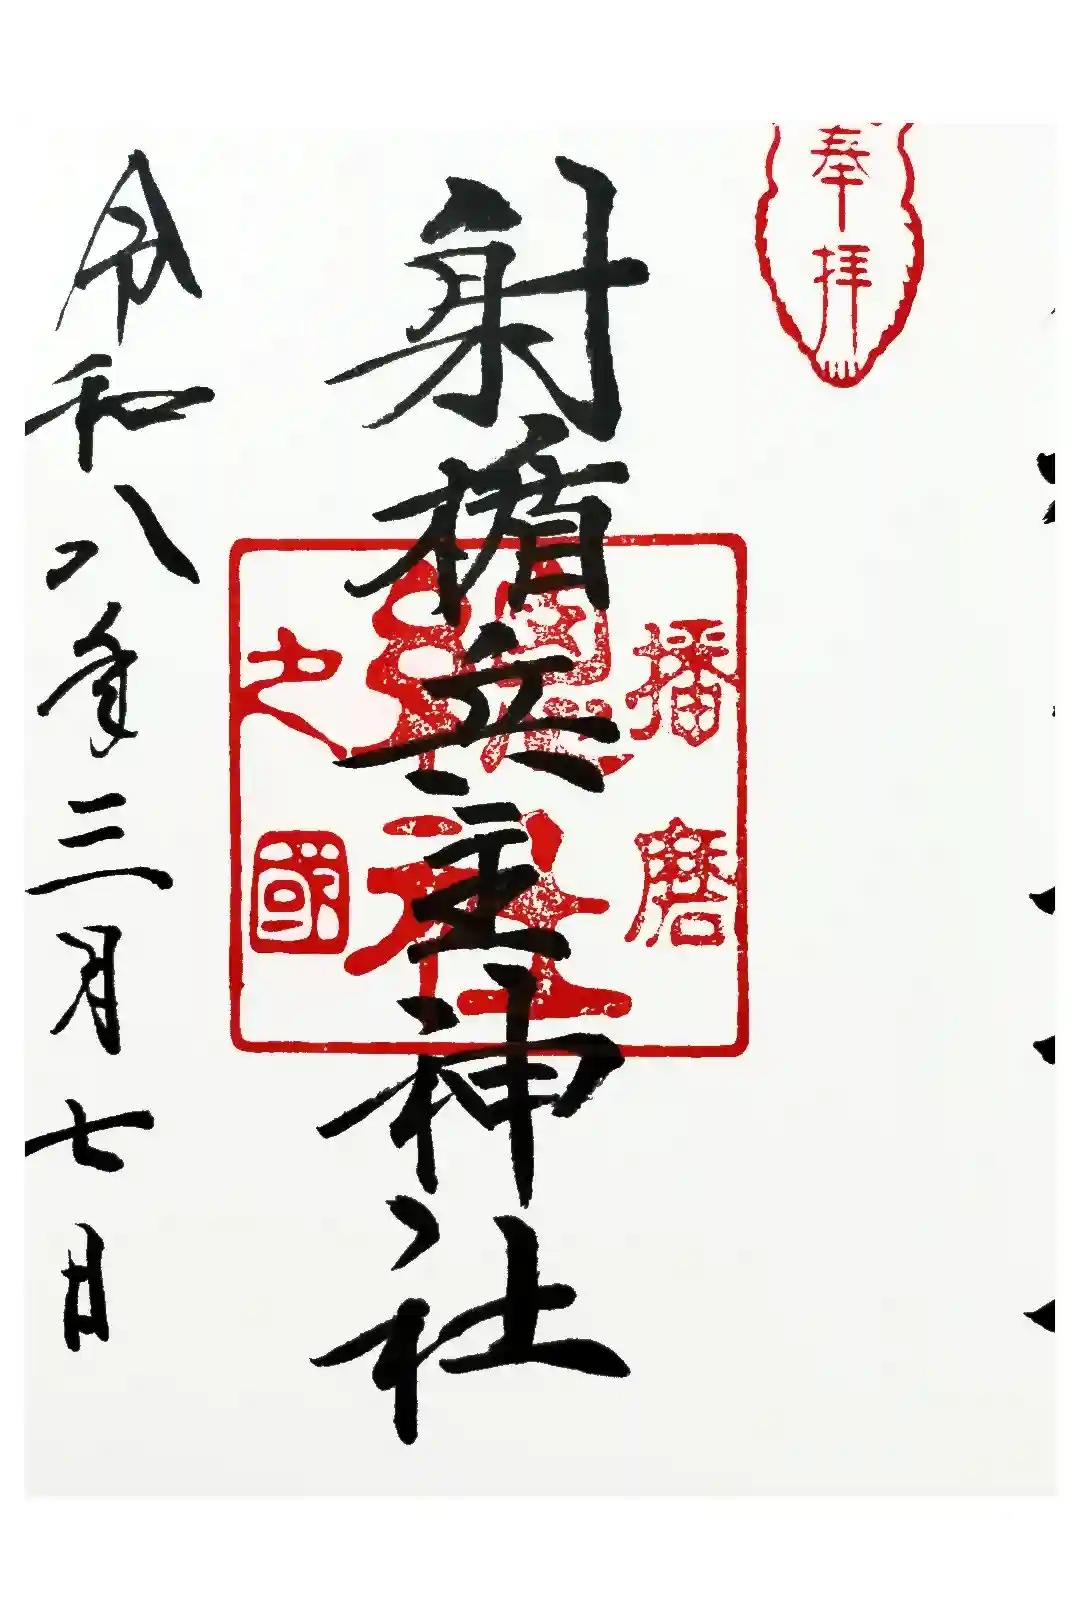 奉拝
射楯兵主神社
播磨
之國
總社
令和八年三月七日